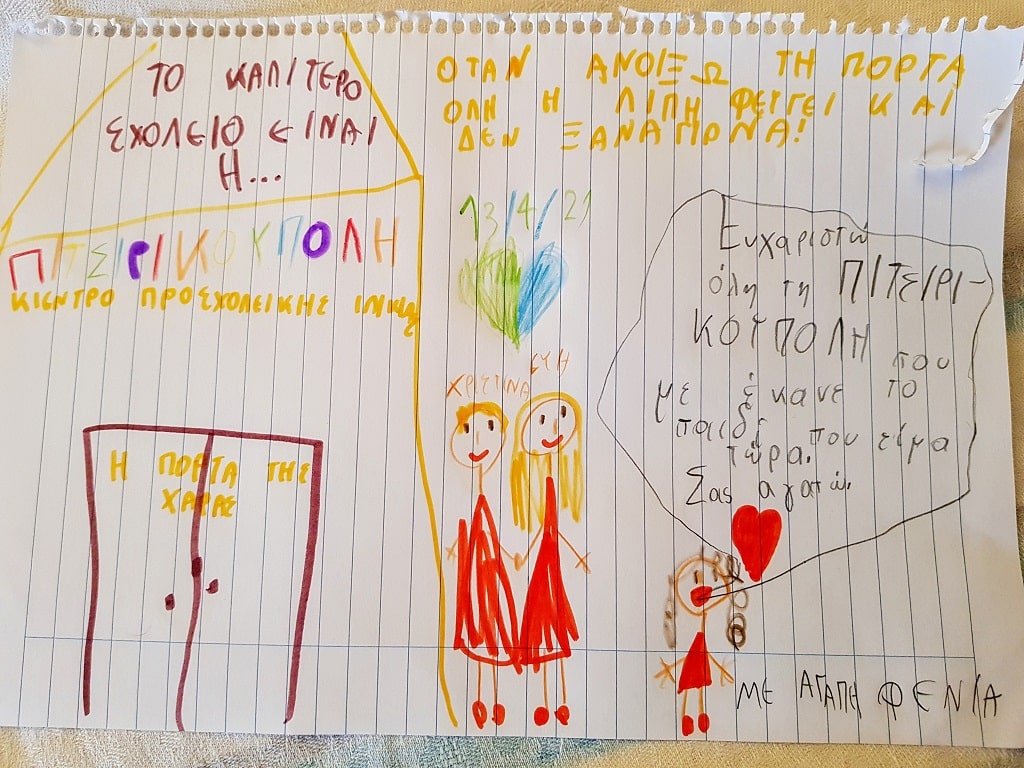 ΤΟ ΚΑΛΙΤΕΡΟ
ΣΧΟΛΕΙΟ ΕΙΝΑΙ
Η...
ΠΙΤΣΙΡΙΚΟΥΠΟΛΗ
ΚΙΕΝΤΡΟ ΠΡΟΣΧΟΛΕΙΚΗΣ
Η ΠΟΡΤΑ ΤΗΣ
ΧΑΡΑΣ
ΟΤΑΝ ΑΝΟΙΞΩ ΤΗ ΠΟΡΤΑ
ΟΛΗ Η ΛΙΠΗ ΦΕΥΓΕΙ ΚΑΙ
ΔΕΝ ΞΑΝΑΓΙΡΝΑ!
13/4/21
ΧΡΙΣΤΙΝΑ
ΕΥΗ
Ευχαριστώ
όλη τη ΠΙΤΣΙΡΙ-
ΚΟΥΠΟΛΗ που
με έκανε το
παιδί που είμα
τώρα.
Σας αγαπώ.
ΜΕ ΑΓΑΠΗ ΦΕΝΙΑ